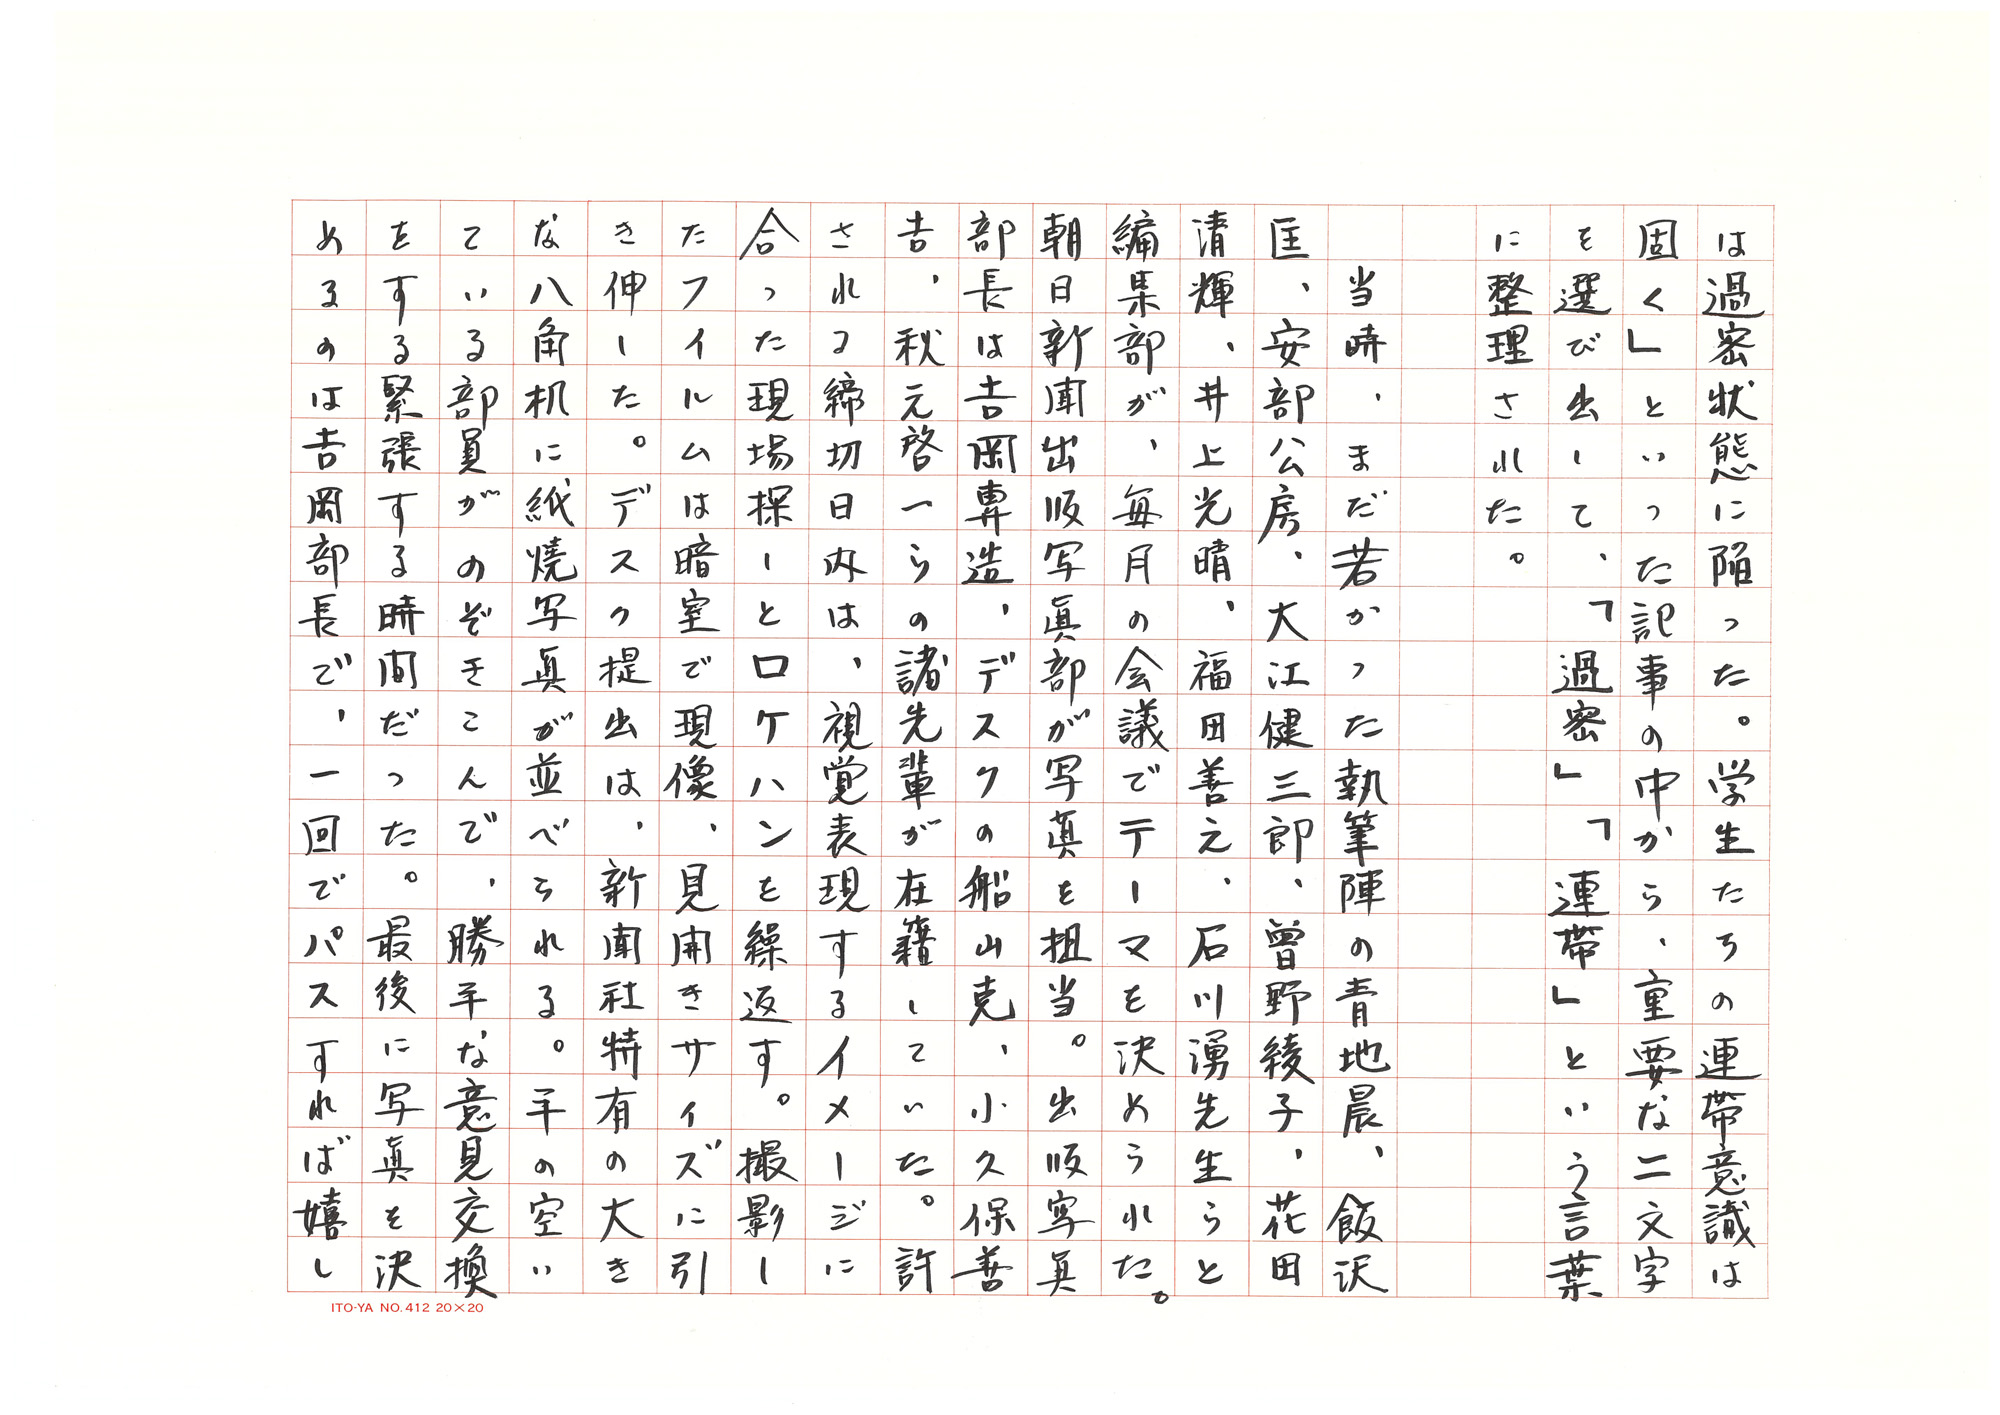 は過密状態に陥った。学生たちの連帯意識は
固く」といった記事の中から、重要な二文字
を選び出して、「過密」「連帯」という言葉
に整理された。
当時、まだ若かった執筆陣の青地晨、飯沢
匡、安部公房、大江健三郎、曽野綾子、花田
清輝、井上光晴、福田善之、石川湧先生らと
編集部が、毎月の会議でテーマを決めらられた。
朝日新聞出版写真部が写真を担当。出版写真
部長は吉岡専造、デスクの船山克、小久保善
吉、秋元啓一らの諸先輩が在籍していた。許
される締切日内は、視覚表現するイメージに
合った現場探しとロケハンを繰返す。撮影し
たフイルムは暗室で現像、見開きサイズに引
き伸した。デスク提出は、新聞社特有の大き
な八角机に紙焼写真が並べられる。手の空い
ている部員がのぞきこんで、勝手な意見交換
をする緊張する時間だった。最後に写真を決
めるのは吉岡部長で、一回でパスすれば嬉し
ITO-YA NO.412 20×20